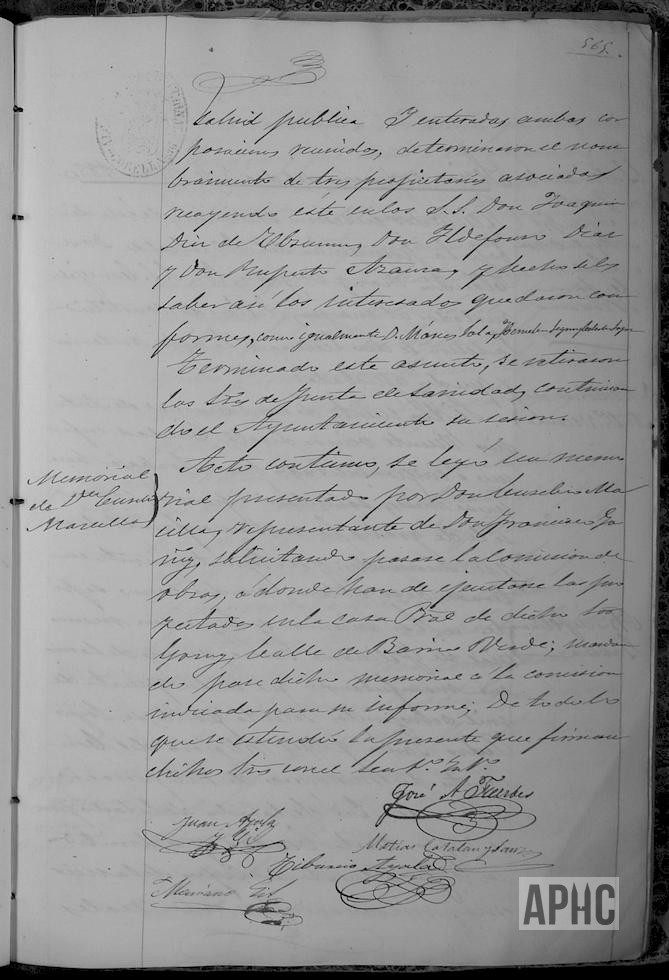 565.
salud publica Y enteradas ambas cor
poraciones reunidas, determinaron el nom
bramiento de tres propietarios asociados
recayendo éste en los S.S. Don Joaquin
Diez de Don Ildefonso Diaz
y Don Ruperto Azanza, y hechoseles
saber asi los interesados quedaron con
formes, como igualmente D. Máxes Sola,
Terminado este asunto, se retiraron
los Sres de Junta de Sanidad, continuan
do el Ayuntamiento su sesion.
Memorial
de Dn Eusebio
Macilla
Acto continuo, se leyó un memo
rial presentado por Don Eusebio Ma
cilla, representante de Don Francisco
solicitando pasase la Comision de
obras, á donde han de ejecutarse las pro
yectadas, en la casa Pral de dicho Sor
Calle de Barrio Verde; mandan
do pase dicho memorial á la comision
indicada para su informe; De todo lo
que se estendió la presente que firman
dichos Sres con el Secro. Into.
José A Fuerdes
Juan Ayala
y Gil
Matias Catalan y
Tiburcio Ayala
Mariano Gil
APHC